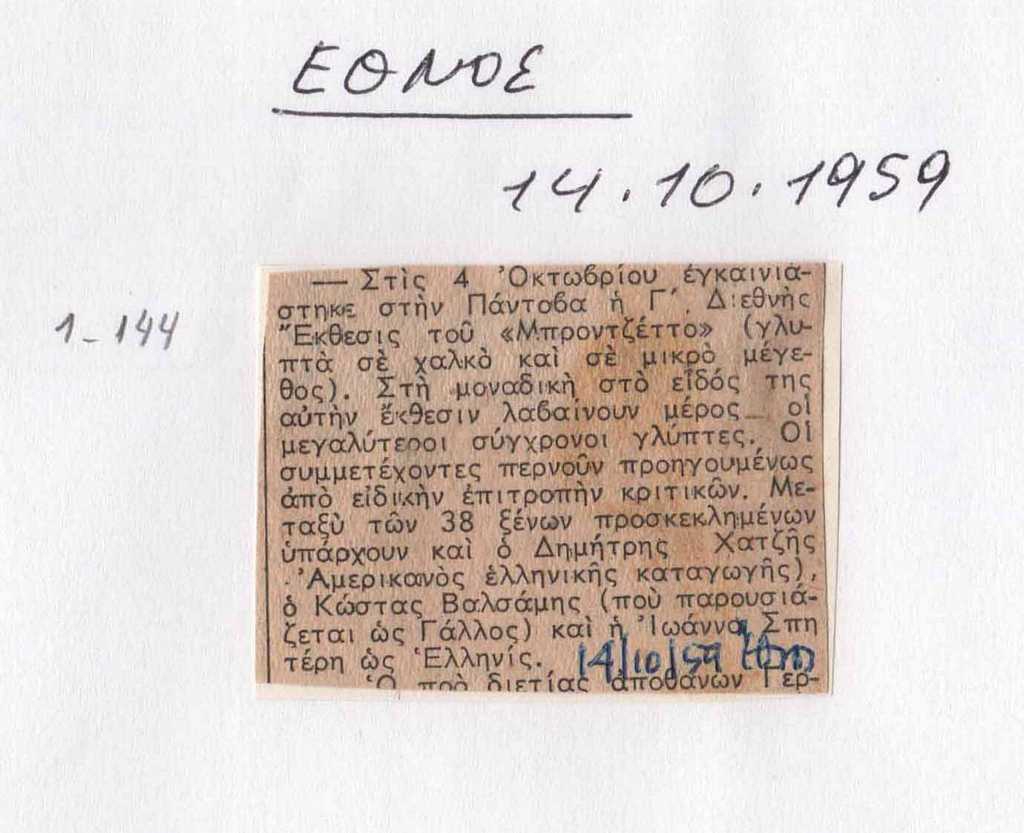 ΕΘΝΟΣ
14.10.1959
1-144
— Στὶς 4 Ὀκτωβρίου ἐγκαινιά-
στηκε στὴν Πάντοβα ἡ Γ΄. Διεθνὴς
Ἔκθεσις τοῦ «Μπροντζέττο» (γλυ-
πτὰ σὲ χαλκὸ καὶ σὲ μικρὸ μέγε-
θος). Στὴ μοναδικὴ στὸ εἶδός της
αὐτὴν ἔκθεσιν λαβαίνουν μέρος οἱ
μεγαλύτεροι σύγχρονοι γλύπτες. Οἱ
συμμετέχοντες περνοῦν προηγουμένως
ἀπὸ εἰδικὴν ἐπιτροπὴν κριτικῶν. Με-
ταξὺ τῶν 38 ξένων προσκεκλημένων
ὑπάρχουν καὶ ὁ Δημήτρης Χατζῆς
Ἀμερικανὸς ἑλληνικῆς καταγωγῆς),
ὁ Κώστας Βαλσάμης (ποὺ παρουσιά-
ζεται ὡς Γάλλος) καὶ ἡ Ἰωάννα Σπη
τέρη ὡς Ἑλληνίς.
14/10/59
Ὁ πρὸ διετίας ἀποθανὼν Γερ-